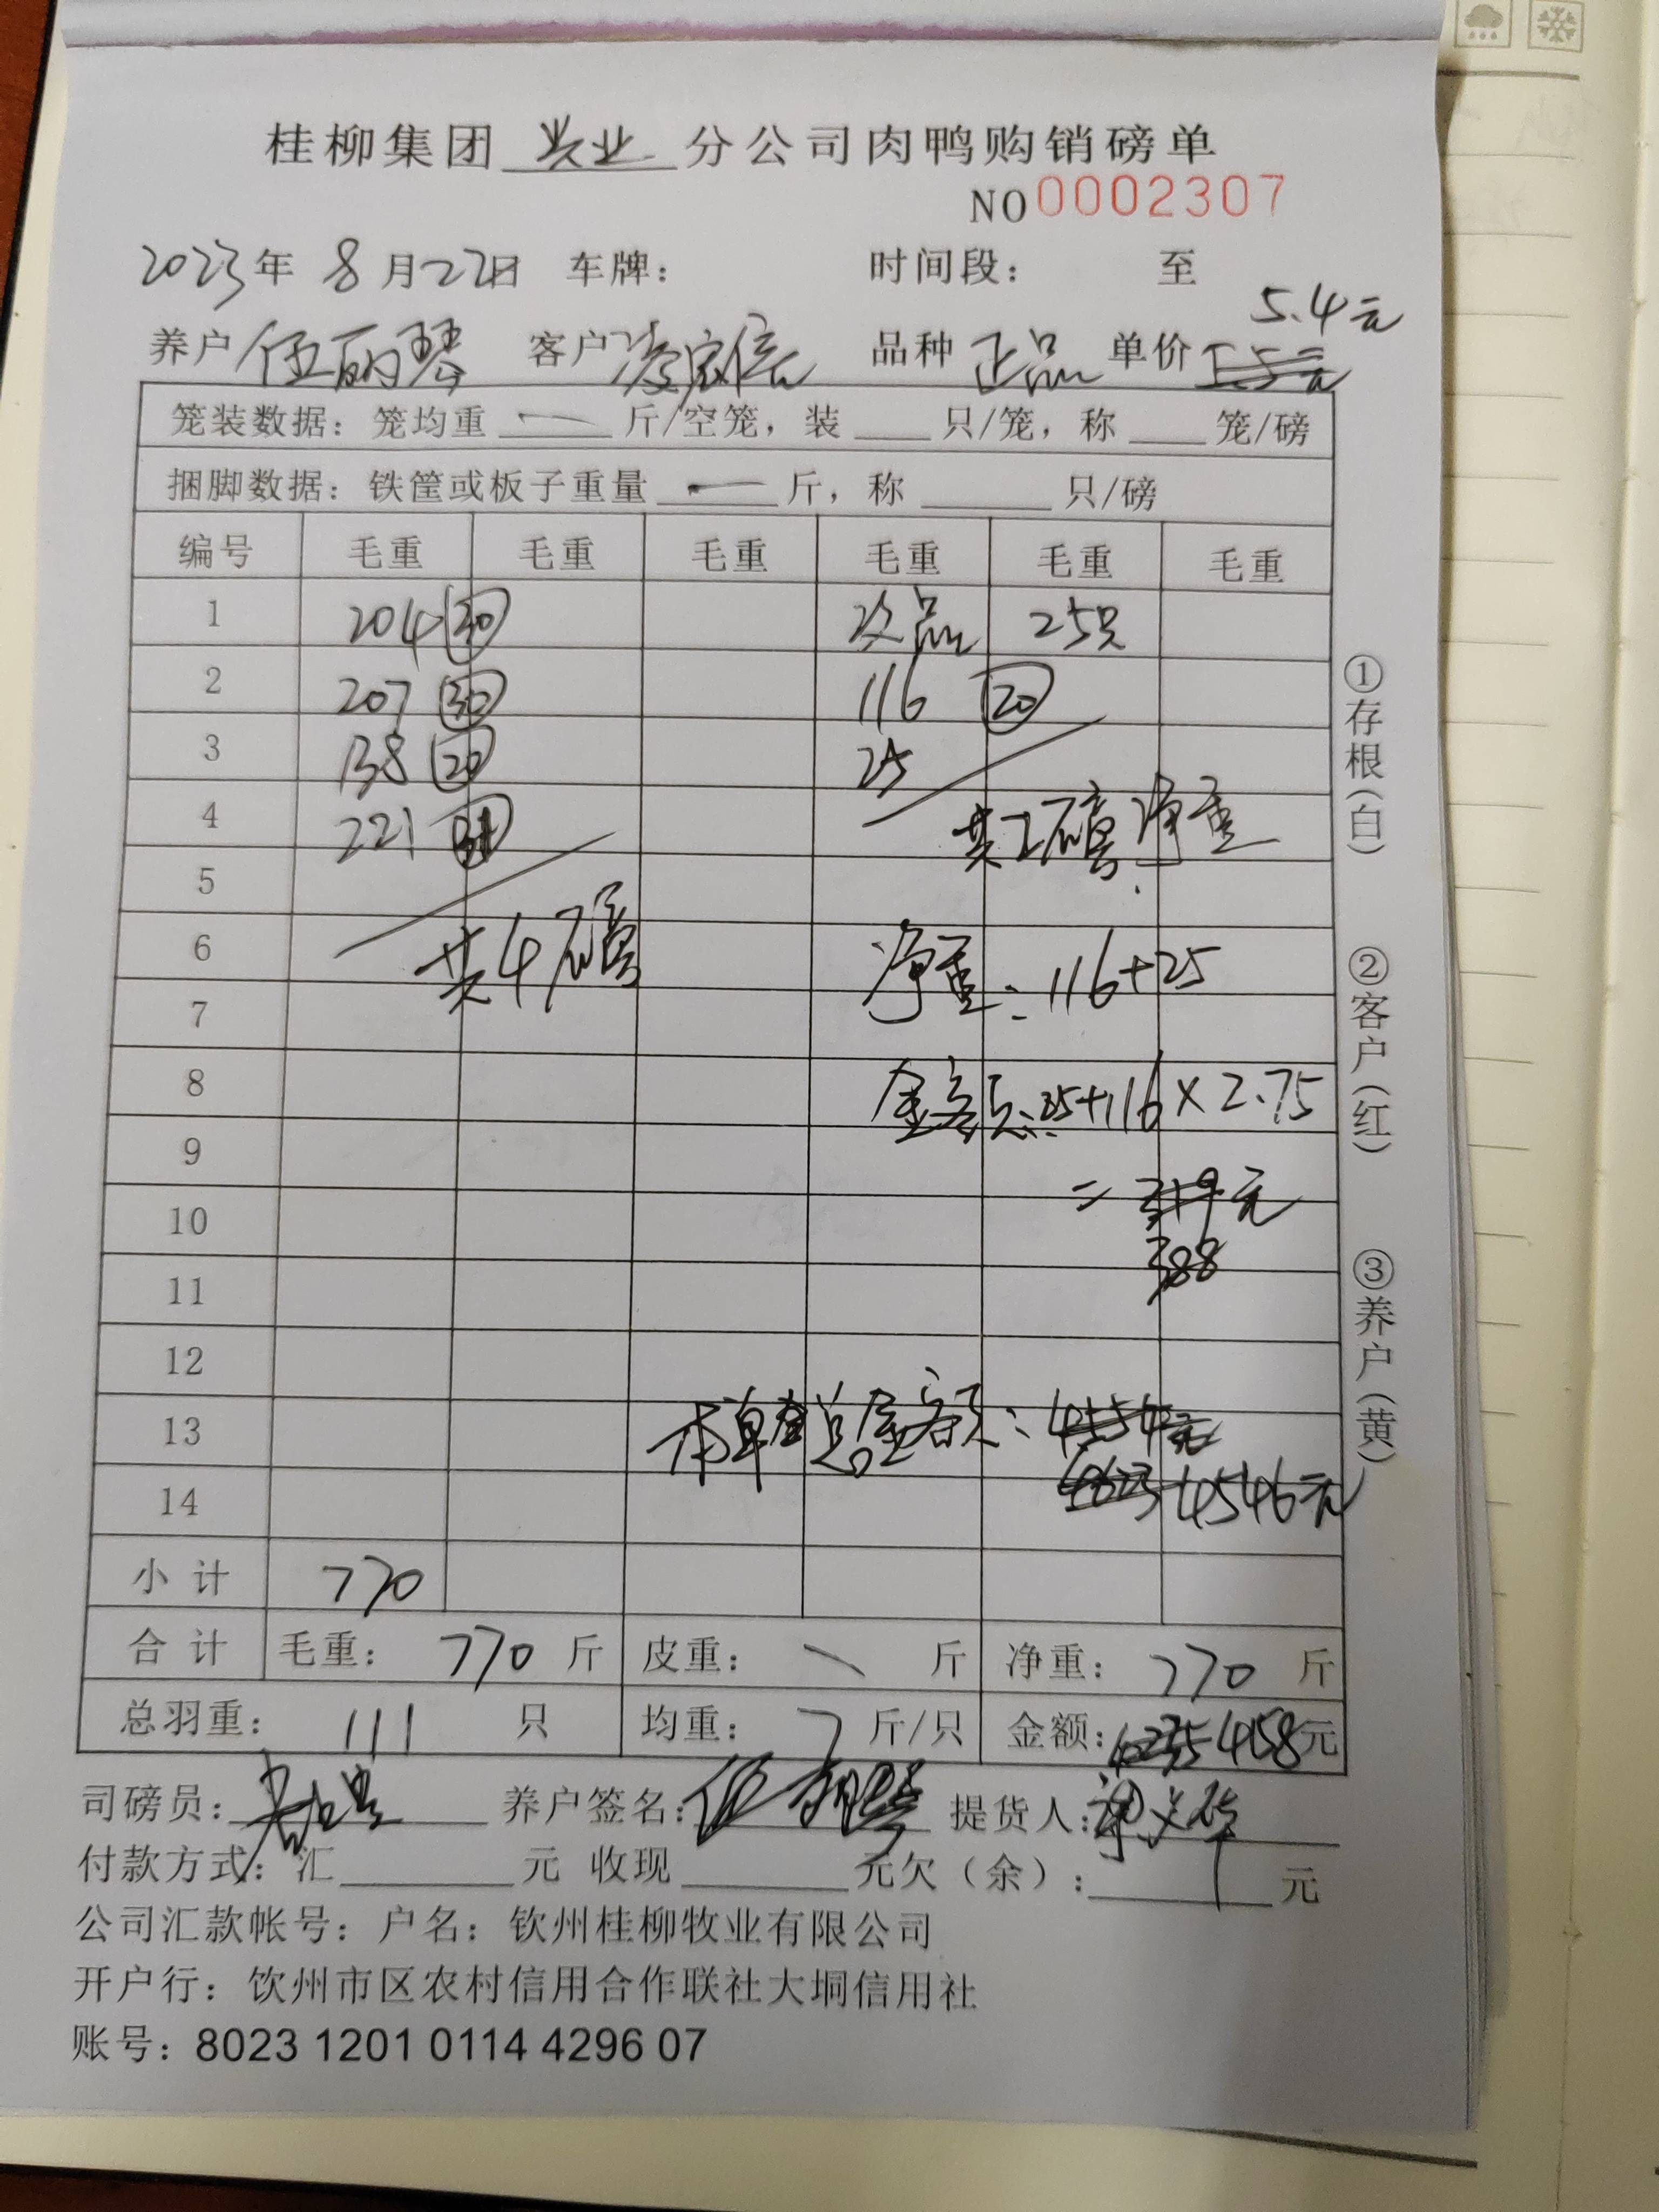 桂柳集团 兴业 分公司肉鸭购销磅单
NO 0002307
2023年 8月22日 车牌: 时间段: 至
5.4元
养户 伍丽琴 客户 品种 正品 单价 5.5元
笼装数据: 笼均重 一 斤/空笼, 装 只/笼, 称 笼/磅
捆脚数据: 铁筐或板子重量 一 斤, 称 只/磅
编号 毛重 毛重 毛重 毛重 毛重 毛重
1 204 30 次品 25只
2 207 30 116 20
3 138 20 25
4 221 31 共2磅 净重
5
6 共4磅 净重: 116+25
7
8 金额: 25+116×2.75
9 = 319元
10 388
11
12
13 本单总金额: 4554元
14 4623 4546元
小计 770
合计 毛重: 770 斤 皮重: 斤 净重: 770 斤
总羽重: 111 只 均重: 7 斤/只 金额: 4235 4158元
司磅员: 养户签名: 伍丽琴 提货人:
付款方式: 汇 元 收现 元欠(余): 元
公司汇款帐号: 户名: 钦州桂柳牧业有限公司
开户行: 钦州市区农村信用合作联社大垌信用社
账号: 8023 1201 0114 4296 07
①存根(白)
②客户(红)
③养户(黄)